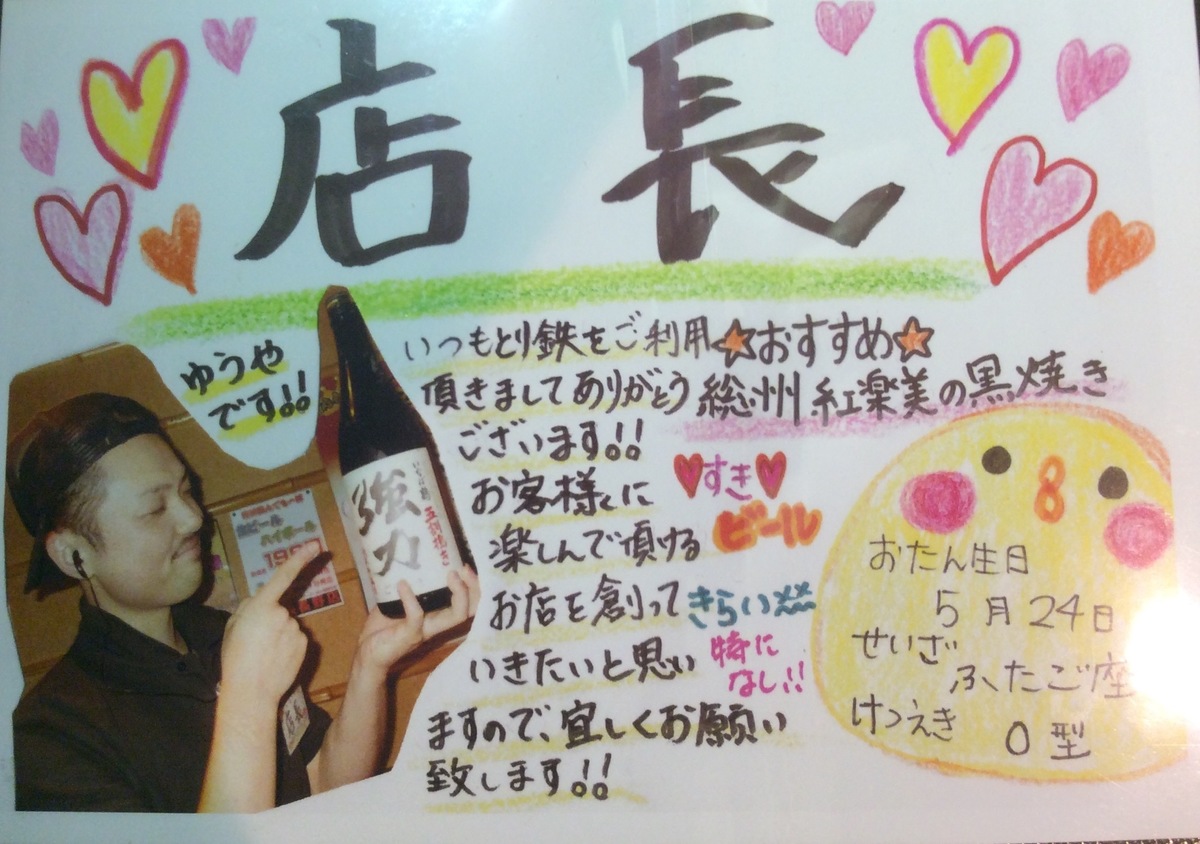 店長
ゆうや
です!!
いつもとり鉄をご利用
頂きましてありがとう
ございます!!
お客様に
楽しんで頂ける
お店を創って
いきたいと思い
ますので、宜しくお願い
致します!!
☆おすすめ☆
総州紅楽美の黒焼き
♥すき♥
ビール
きらい
特に
なし!!
おたん生日
5月24日
せいざ
ふたご座
けつえき
O型
強力
生ビール
ハイボール
店長